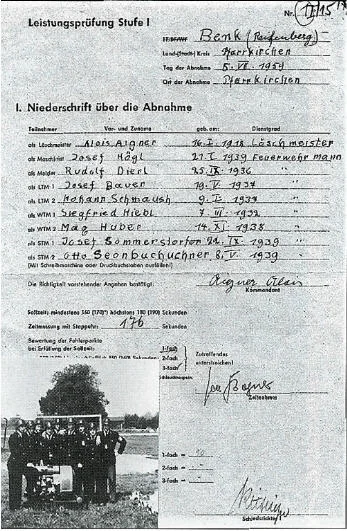 Leistungsprüfung Stufe I
Nr. II/15
Benk (Reifenberg)
Land-(Stadt-) Kreis Pfarrkirchen
Tag der Abnahme 5. VI. 1959
Ort der Abnahme Pfarrkirchen
I. Niederschrift über die Abnahme
Teilnehmer Vor- und Zuname geb. am: Dienstgrad
als Löschmeister Alois Aigner 16. I. 1918 Löschmeister
als Maschinist Josef Högl 27. I. 1939 Feuerwehrmann
als Melder Rudolf Dierl 25. IX. 1936 "
als LTM 1 Josef Bauer 19. V. 1937 "
als LTM 2 Johann Schmaush 9. I. "
als WTM 1 Siegfried Hiebl 7. III. "
als WTM 2 Max Huber 14. XI. 1938 "
als STM 1 Josef Sommerstorfer 21. IX. 1939 "
als STM 2 Otto Seonbuchuchner 8. V. 1939 "
(Mit Schreibmaschine oder Druckbuchstaben ausfüllen!)
Die Richtigkeit vorstehender Angaben bestätigt.
Aigner Alois
Kommandant
Sollzeit: mindestens 160 (170)* höchstens 180 (190) Sekunden
Zeitmessung mit Stoppuhr: 176 Sekunden
Bewertung der Fehlerpunkte
bei Erfüllung der Sollzeit:
1-fach
2-fach
3-fach
Zutreffendes
unterstreichen!
Zeitnehmer
1-fach =
2-fach =
3-fach =
Schiedsrichter